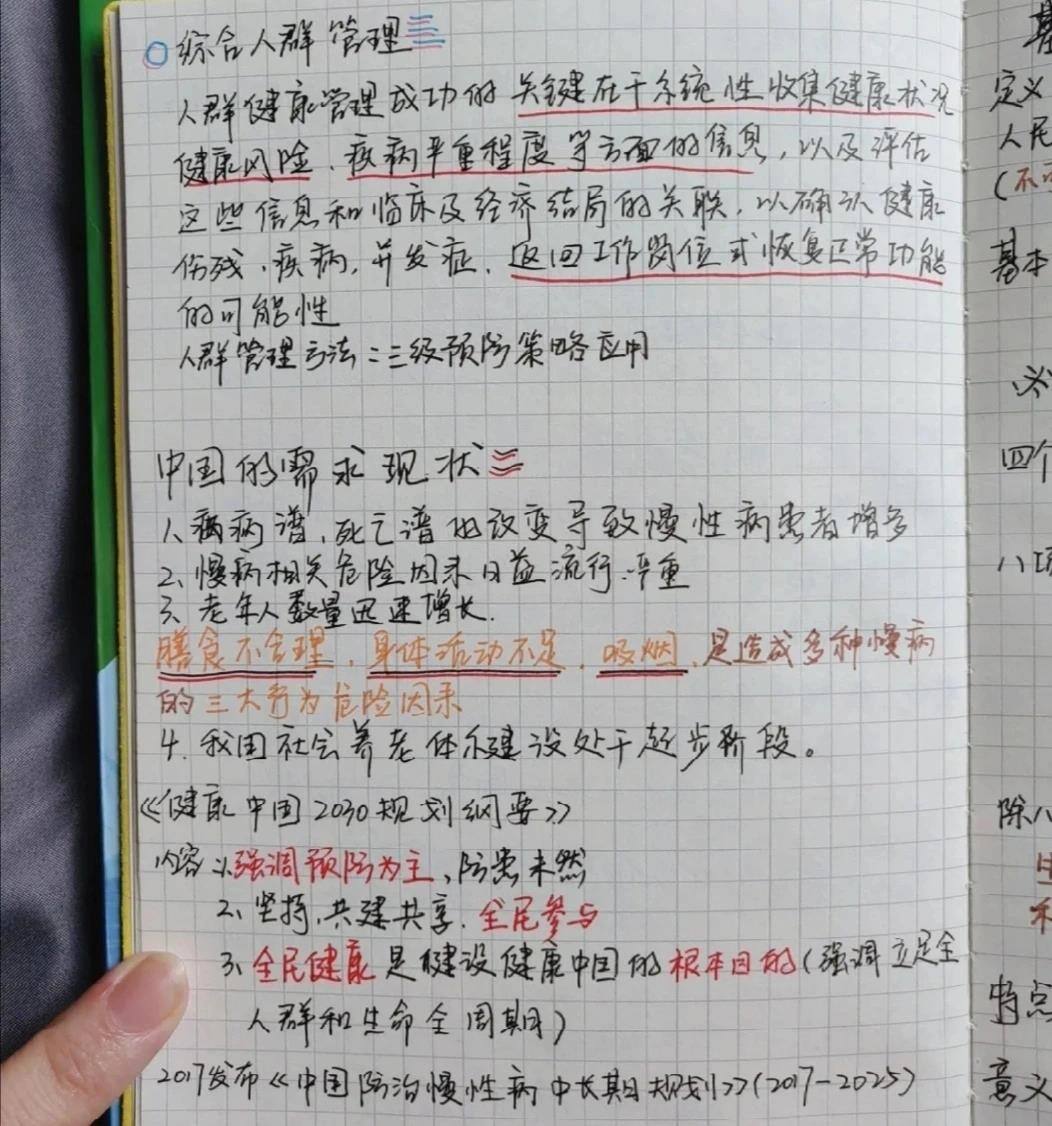 综合人群管理
人群健康管理成功的关键在于系统性收集健康状况
健康风险、疾病严重程度等方面的信息，以及评估
这些信息和临床及经济结局的关联，以确认健康
伤残、疾病、并发症、返回工作岗位或恢复正常功能
的可能性
人群管理方法：三级预防策略应用
中国的需求现状
1、疾病谱、死亡谱的改变导致慢性病患者增多
2、慢病相关危险因素日益流行、严重
3、老年人数量迅速增长.
膳食不合理、身体活动不足、吸烟、是造成多种慢病
的三大行为危险因素
4、我国社会养老体系建设处于起步阶段。
《健康中国2030规划纲要》
内容 1、强调预防为主、防患未然
2、坚持、共建共享、全民参与
3、全民健康是健设健康中国的根本目的(强调立足全
人群和生命全周期)
2017发布《中国防治慢性病中长期规划》(2017-2025)
定义
人民
(不可
基本
必
四个
八项
除八
特点
意义